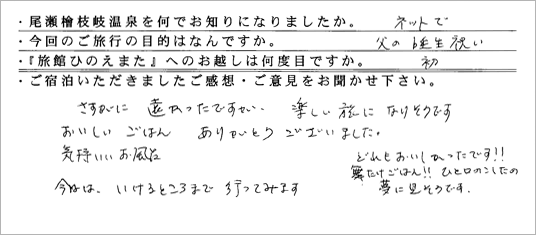 ・尾瀬檜枝岐温泉を何でお知りになりましたか。 ネットで
・今回のご旅行の目的はなんですか。 父の誕生祝い
・『旅館ひのえまた』へのお越しは何度目ですか。 初
・ご宿泊いただきましたご感想・ご意見をお聞かせ下さい。
さすがに 遠かったですが、 楽しい旅に なりそうです
おいしい ごはん ありがとう ございました。
気持いい お風呂
どれもおいしかったです!!
舞たけごはん!! ひと口のこしたの
夢に見そうです.
今日は、いけるところまで 行ってみます